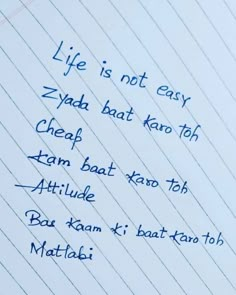 Life is not easy
Zyada baat karo toh
Cheap
Kam baat karo toh
Attilude
Bas Kaam ki baat karo toh
Matlabi